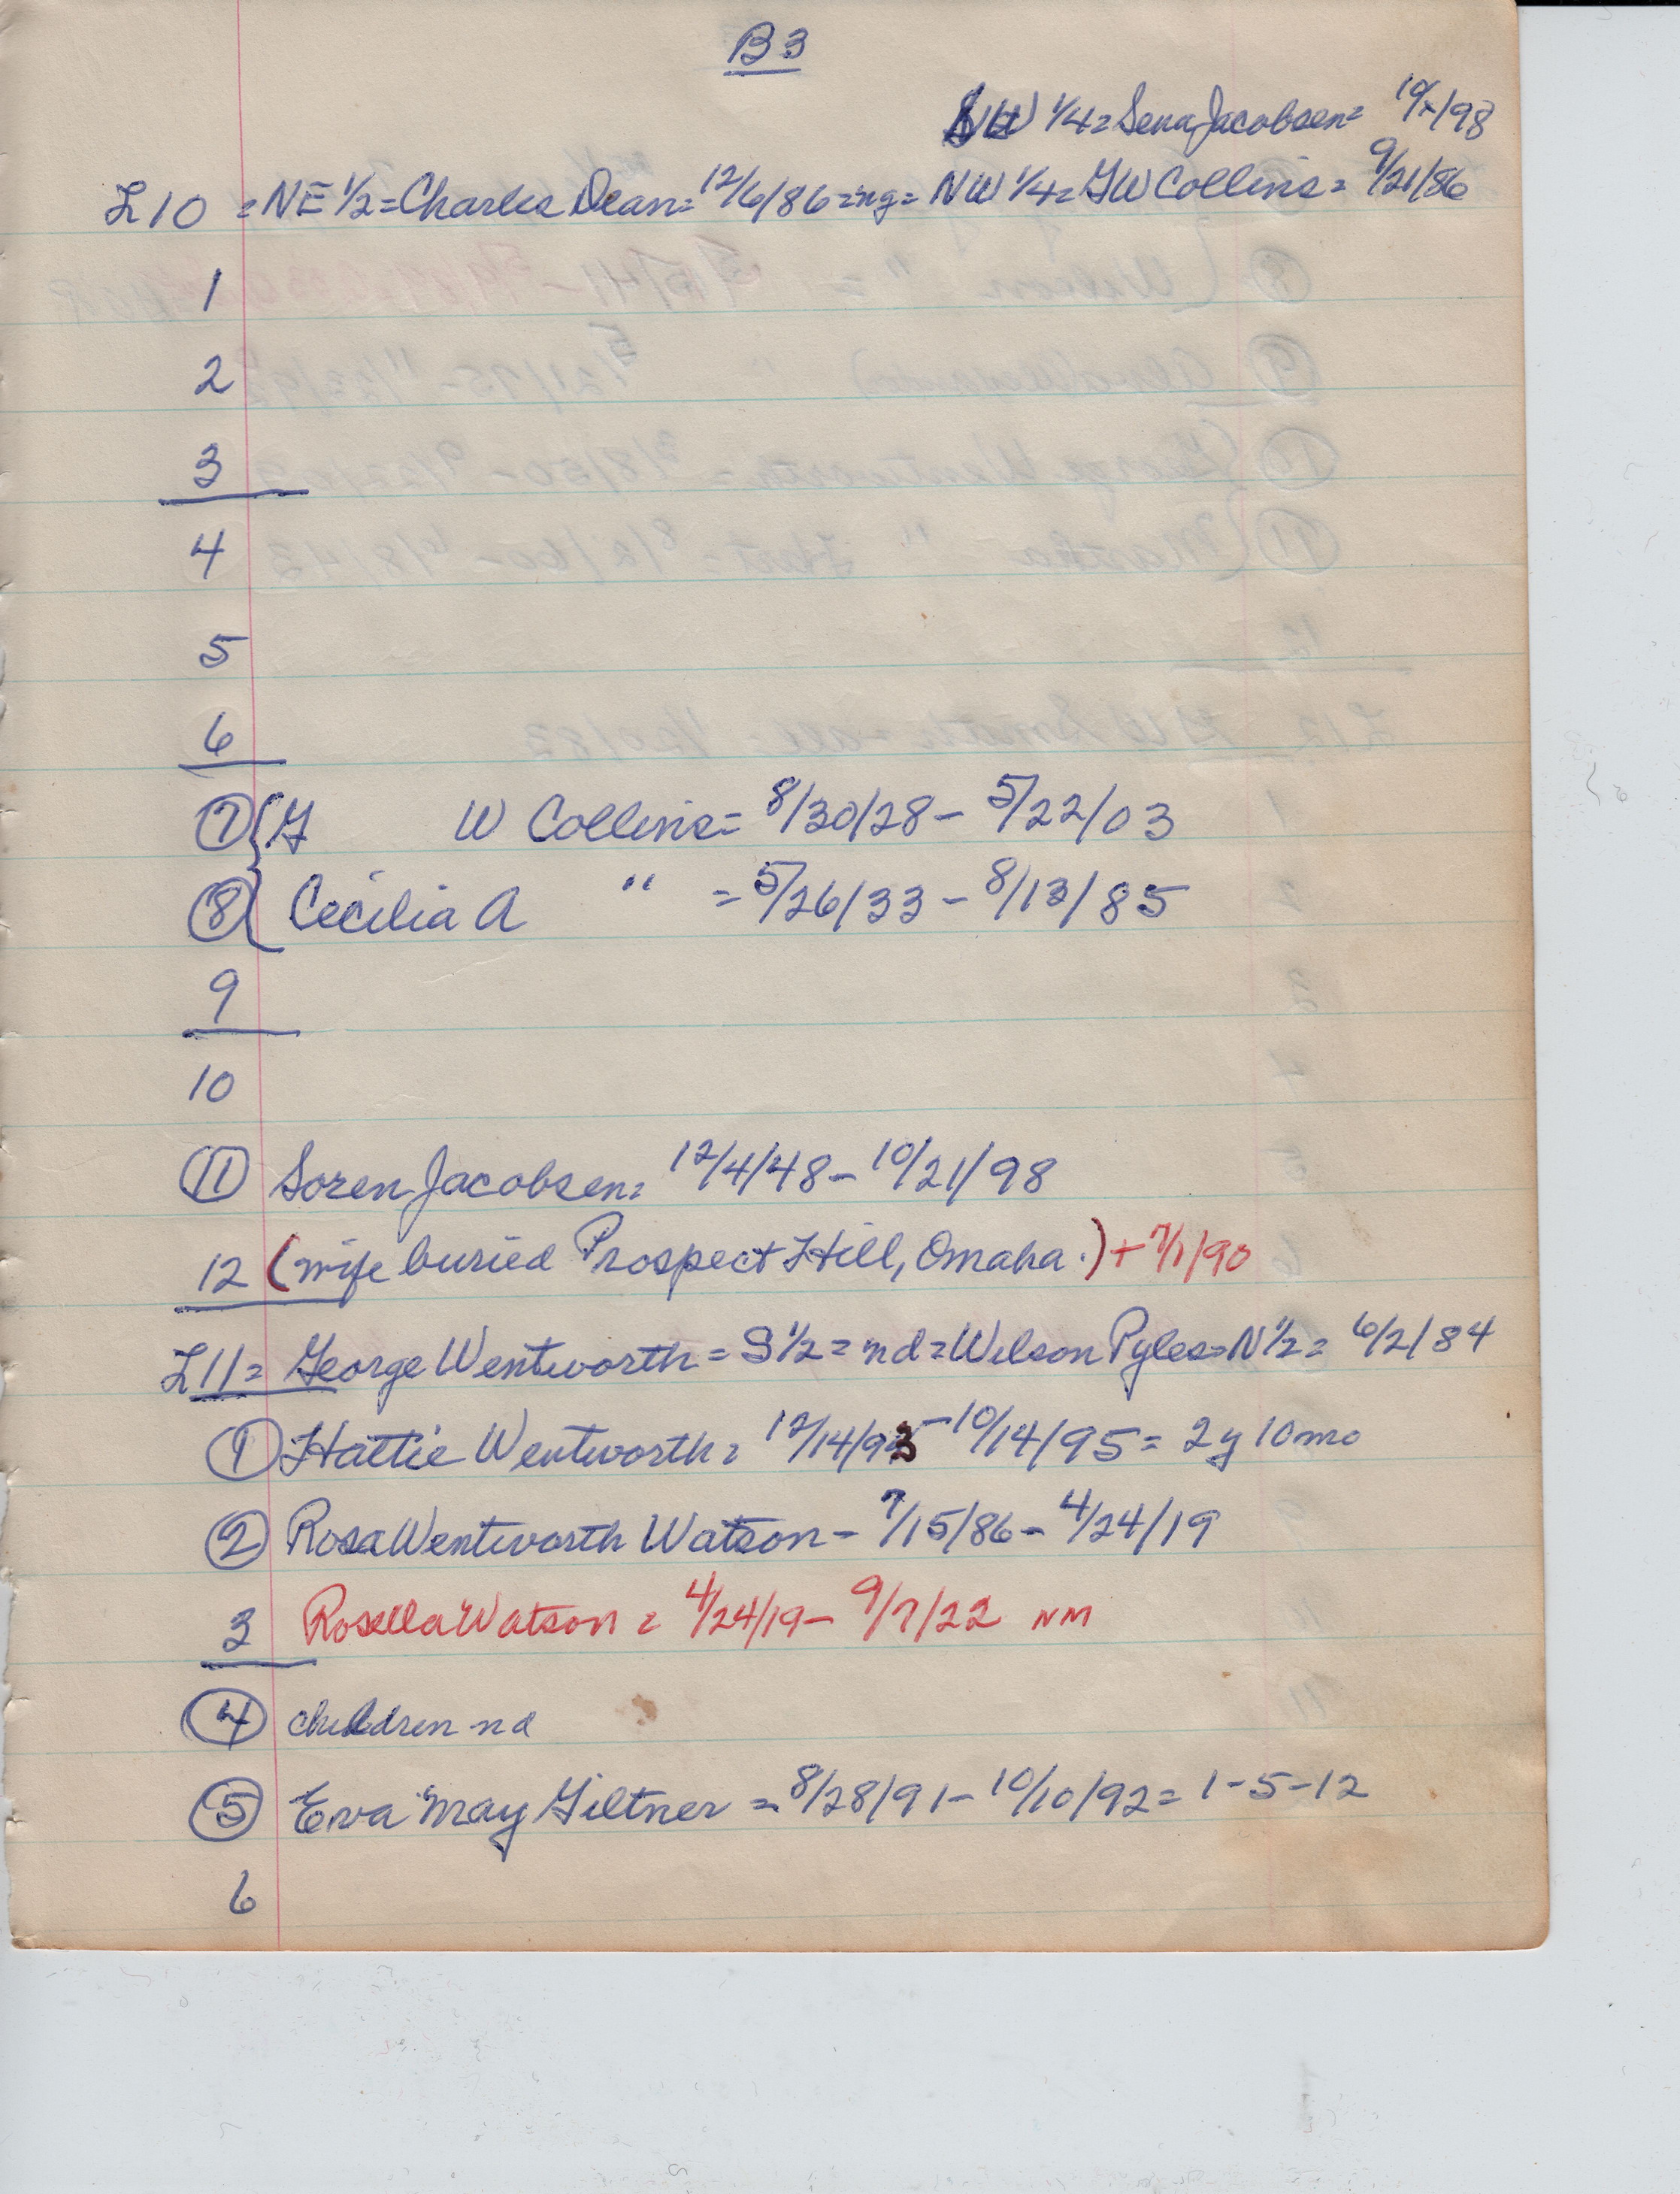 B3
SW 1/4 = Sena Jacobsen = 10/x/98
L10 = NE 1/2 = Charles Dean = 12/6/86 = ng = NW 1/4 = GW Collins = 9/21/86
1
2
3
4
5
6
7 { G W Collins = 8/30/28 - 5/22/03
8 { Cecilia A " = 5/26/33 - 8/13/85
9
10
11 Soren Jacobsen = 12/4/48 - 10/21/98
12 (wife buried Prospect Hill, Omaha.) + 7/1/90
L11 = George Wentworth = S 1/2 = nd = Wilson Pyles = N 1/2 = 6/2/84
1 Hattie Wentworth = 12/14/93 - 10/14/95 = 2y 10mo
2 Rosa Wentworth Watson - 7/15/86 - 4/24/19
3 Rosella Watson = 4/24/19 - 9/7/22 NM
4 children nd
5 Eva May Giltner = 8/28/91 - 10/10/92 = 1-5-12
6